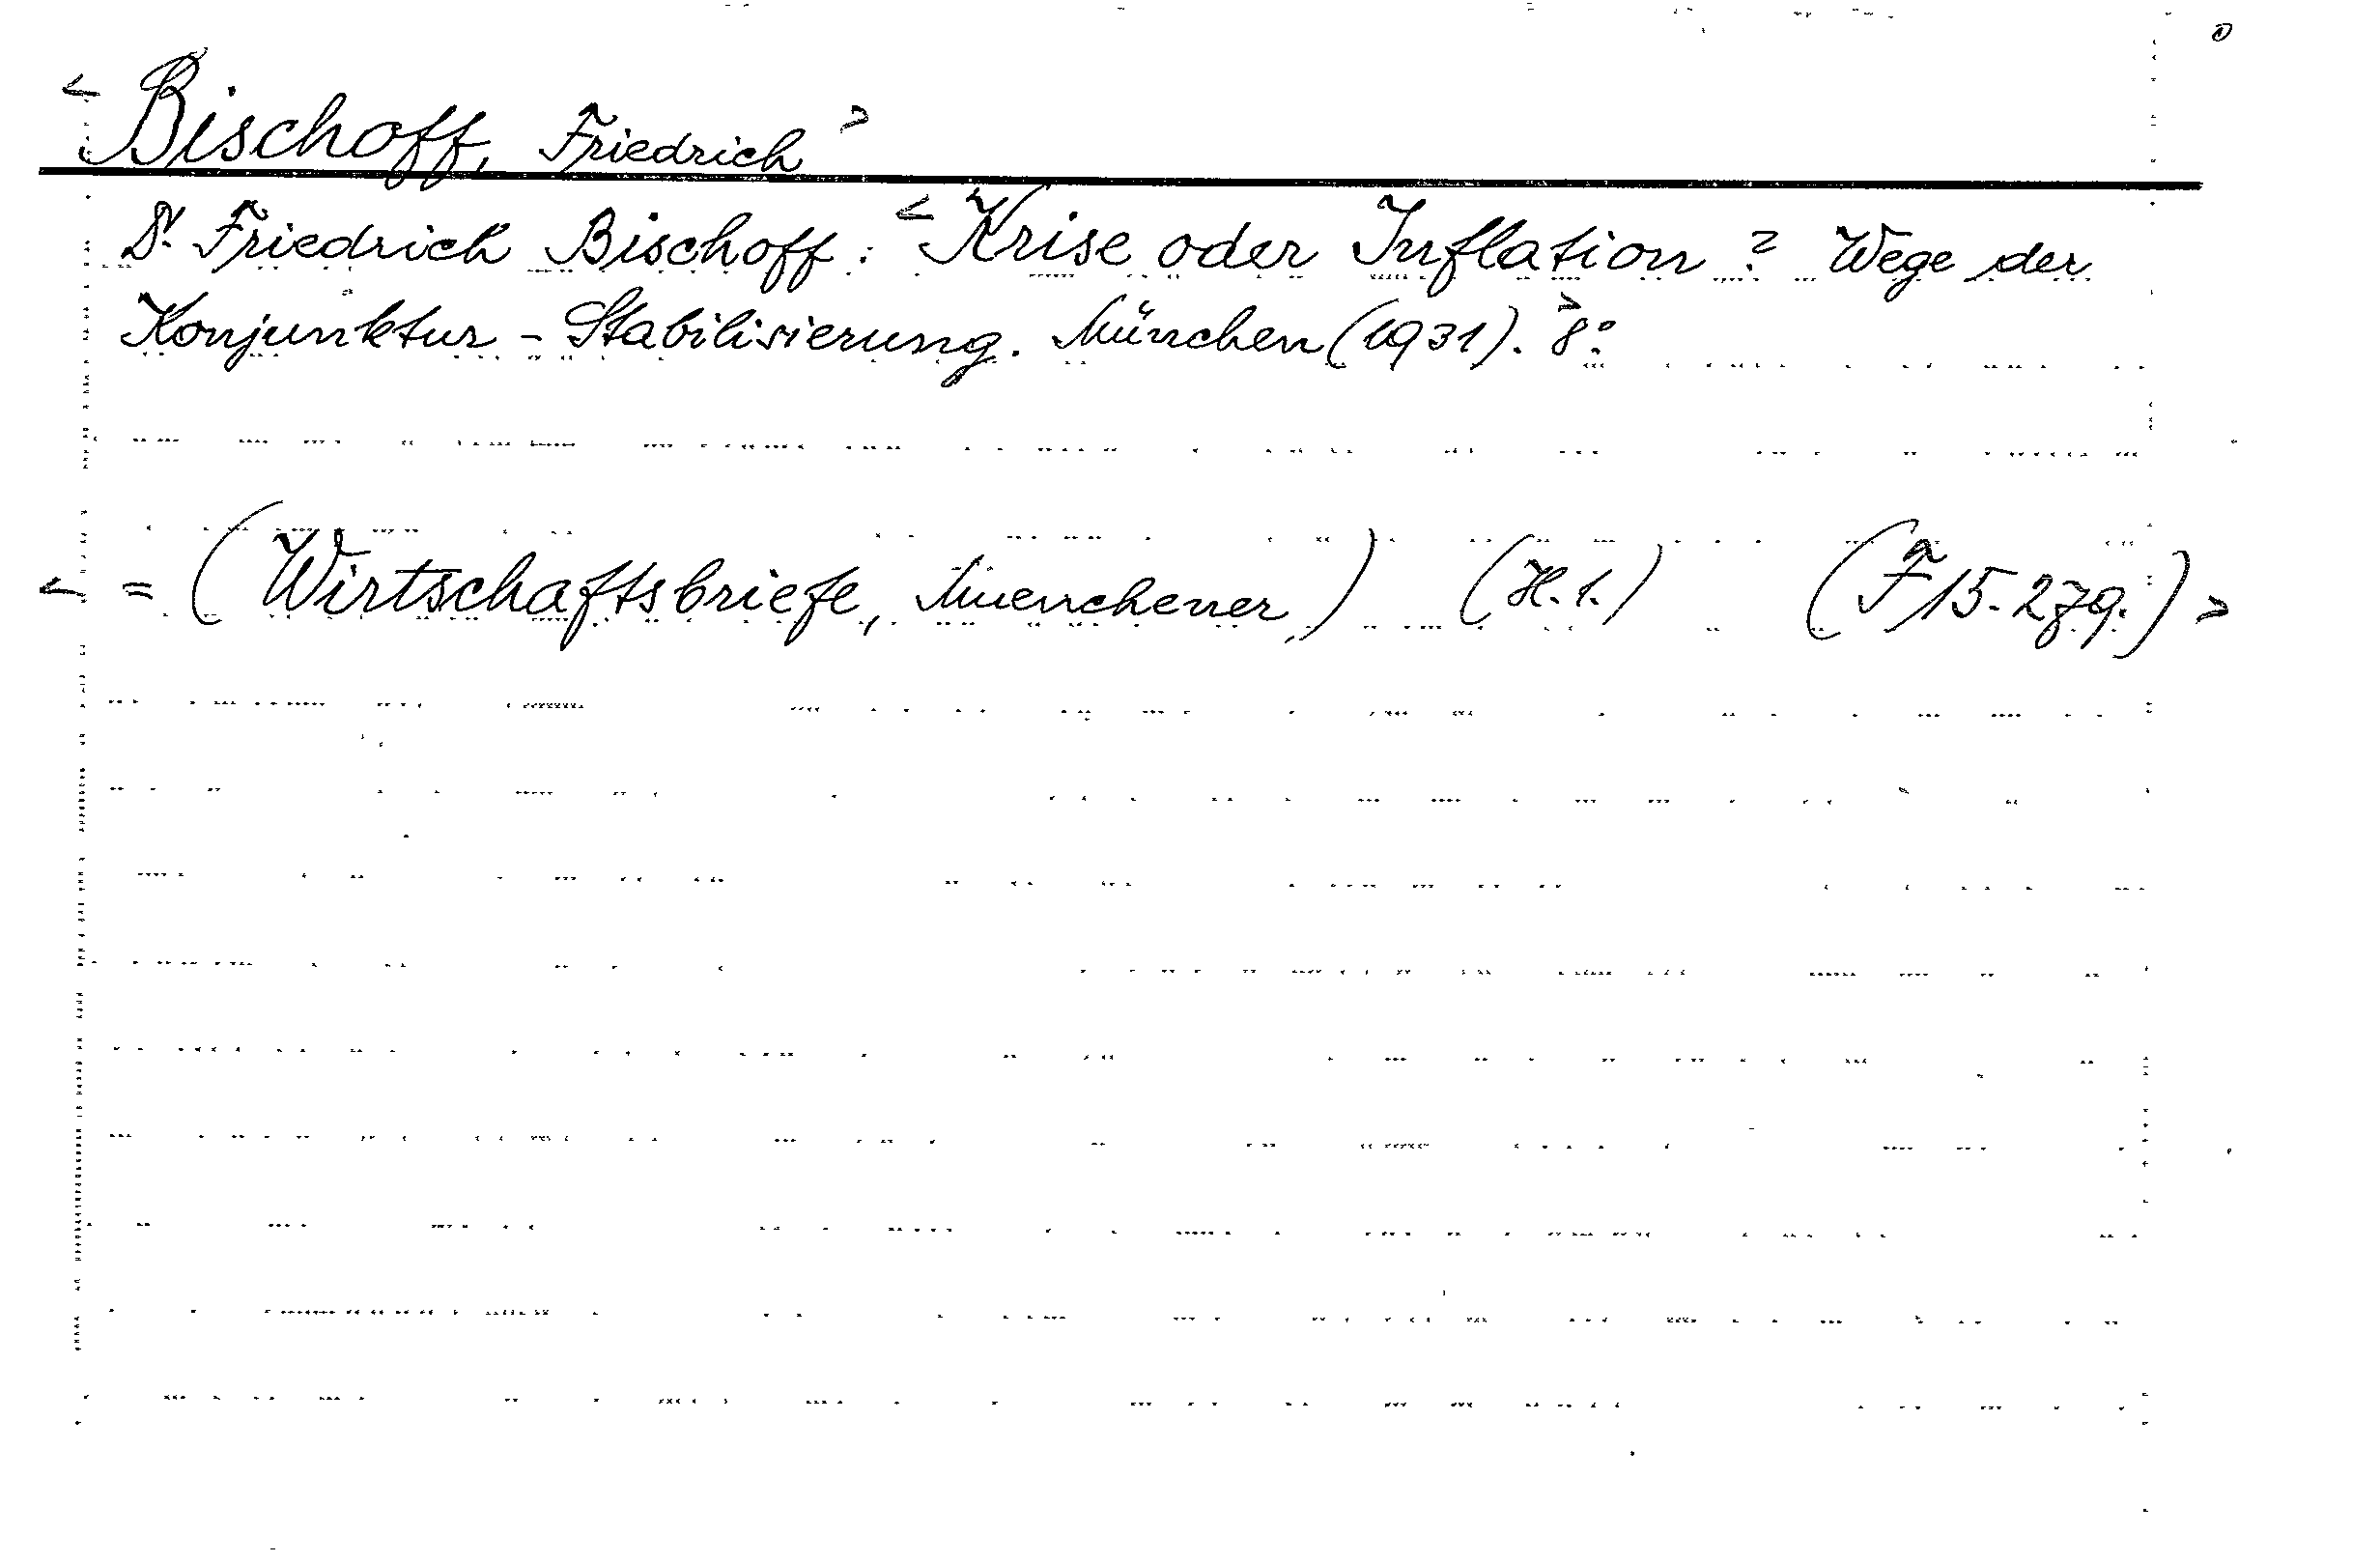 < Bischoff, Friedrich >
Dr. Friedrich Bischoff: < Krise oder Inflation? Wege der
Konjunktur-Stabilisierung. München (1931). > 8°.
< = (Wirtschaftsbriefe, Muenchener) (H. 1.) (F 15. 279.) >